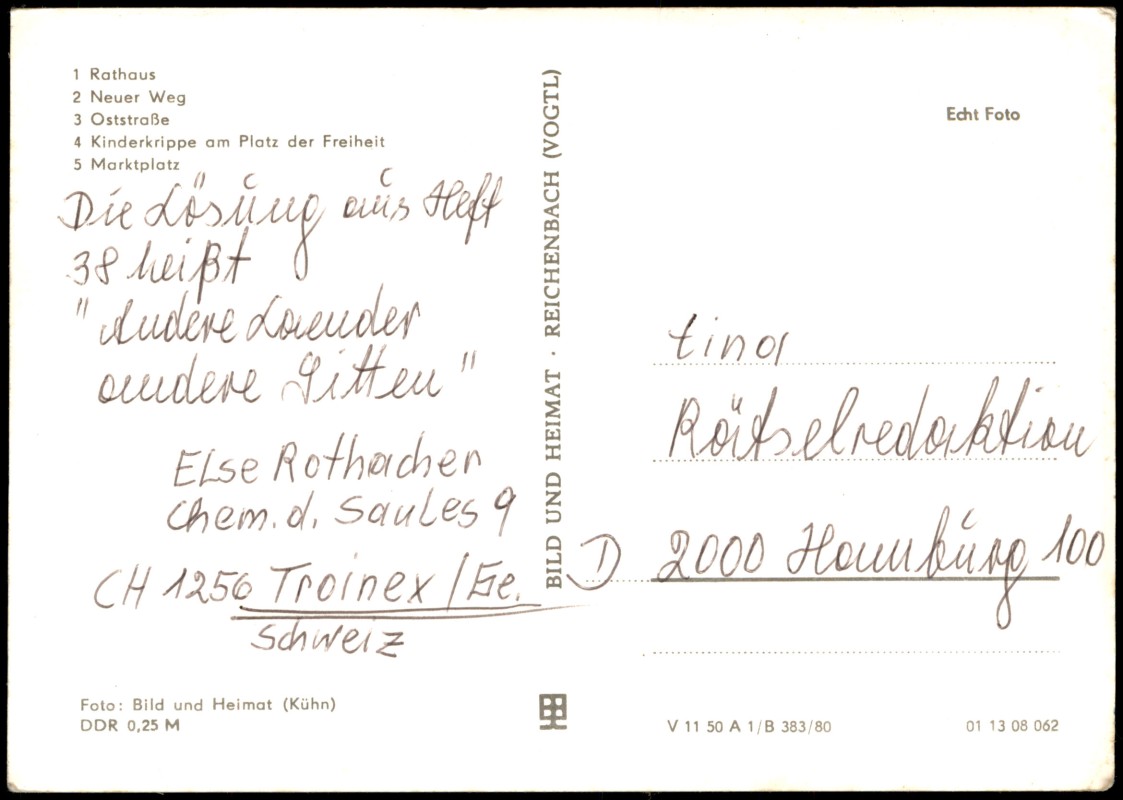 1 Rathaus
2 Neuer Weg
3 Oststraße
4 Kinderkrippe am Platz der Freiheit
5 Marktplatz
Die Lösung aus Heft
38 heißt
"Andere Laender
andere Sitten"
Else Rothacher
Chem. d. Saules 9
CH 1256 Troinex / Ge.
Schweiz
Foto: Bild und Heimat (Kühn)
DDR 0,25 M
BILD UND HEIMAT · REICHENBACH (VOGTL)
Echt Foto
tina
Rätselredaktion
D 2000 Hamburg 100
V 11 50 A 1/B 383/80
01 13 08 062